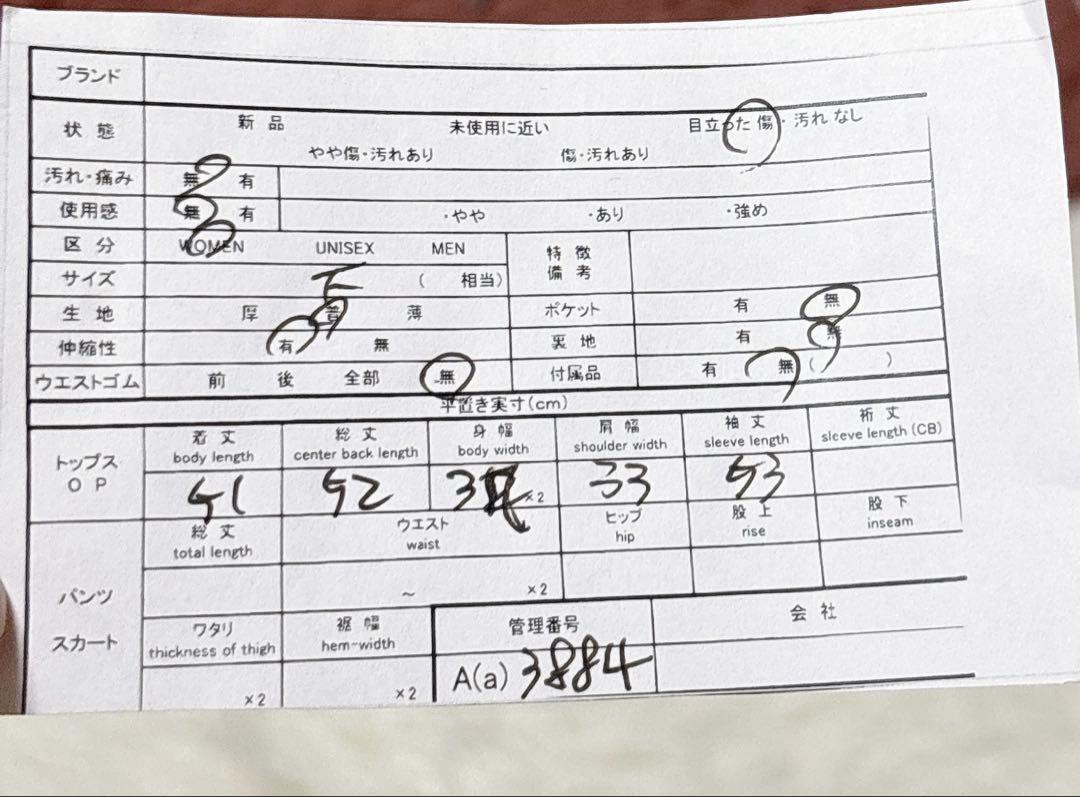 ブランド
状態 新品 未使用に近い 目立った傷・汚れなし
やや傷・汚れあり 傷・汚れあり
汚れ・痛み 無 有
使用感 無 有 ・やや ・あり ・強め
区分 WOMEN UNISEX MEN 特徴
備考
サイズ ( 相当)
生地 厚 普 薄 ポケット 有 無
伸縮性 有 無 裏地 有 無
ウエストゴム 前 後 全部 無 付属品 有 無 ( )
平置き実寸(cm)
トップス
OP
着丈 総丈 身幅 肩幅 袖丈 裄丈
body length center back length body width shoulder width sleeve length sleeve length (CB)
51 52 ×2 33 53
総丈 ウエスト ヒップ 股上 股下
total length waist hip rise inseam
パンツ
スカート
~ ×2
ワタリ 裾幅 管理番号 会社
thickness of thigh hem-width
×2 ×2 A(a) 3884